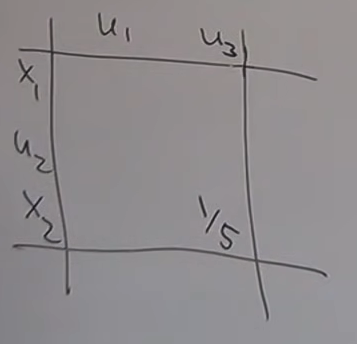 u₁ u₃
x₁
u₂
x₂ 1/5